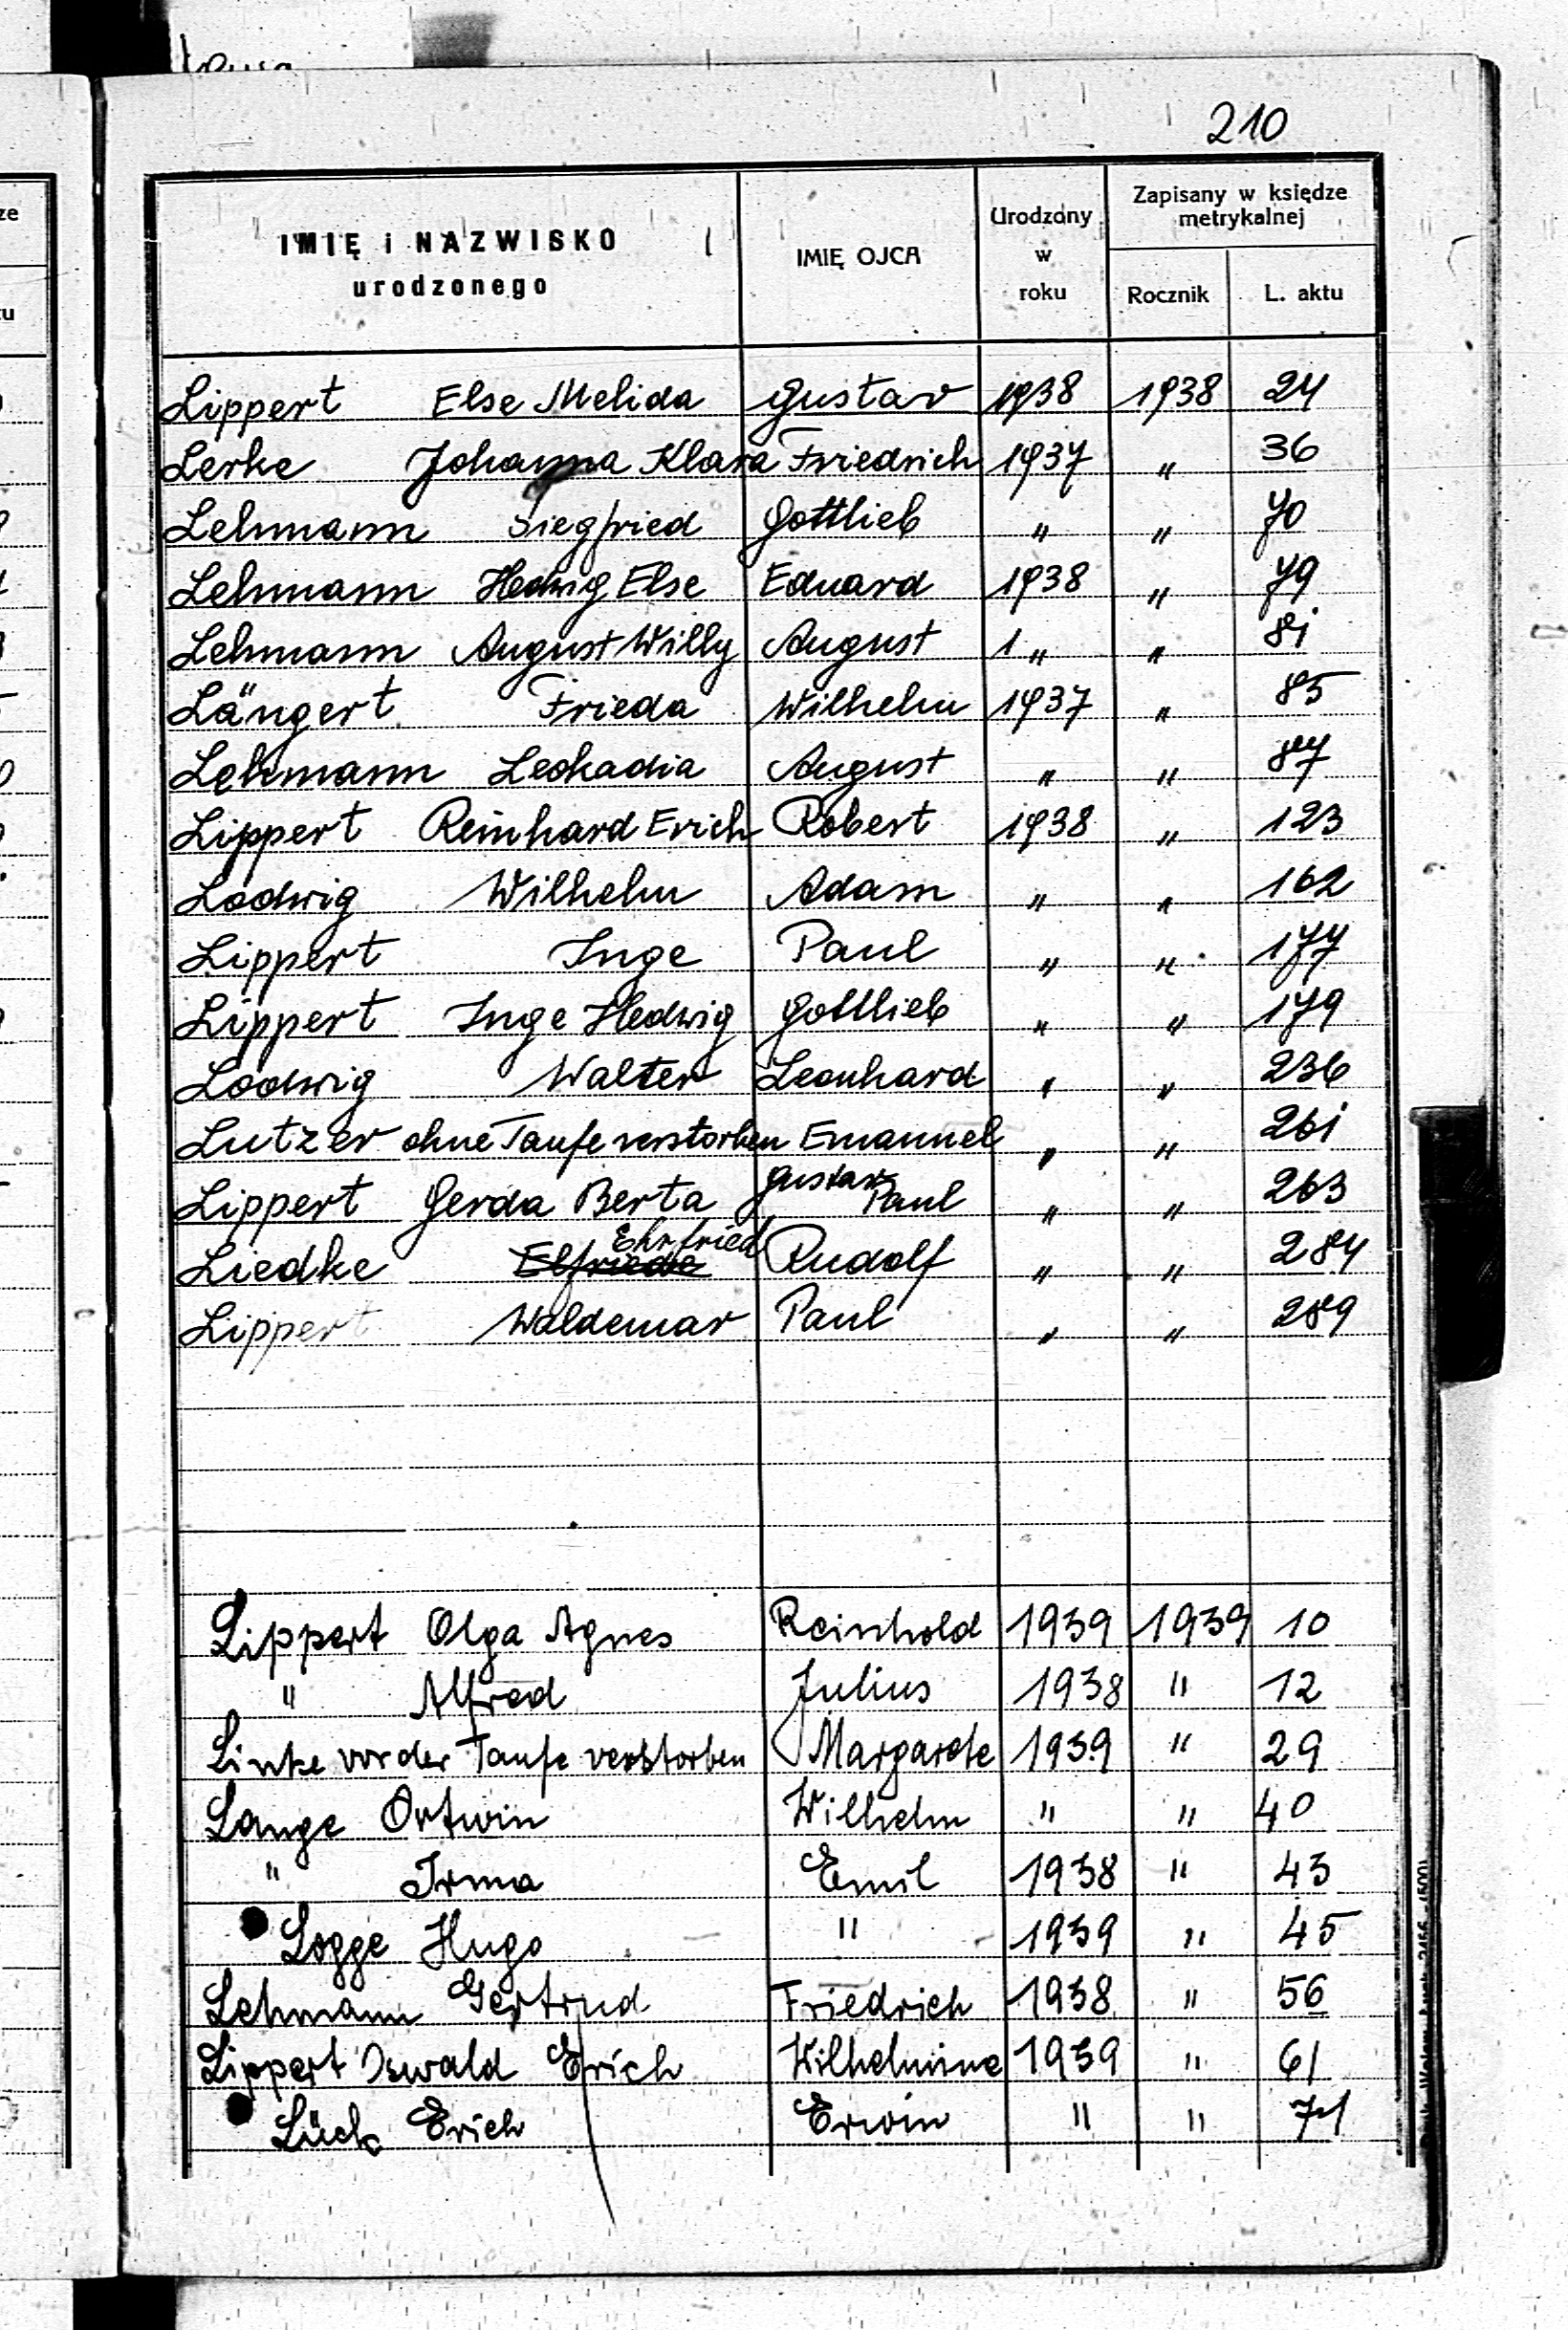 210
IMIĘ i NAZWISKO
urodzonego
IMIĘ OJCA
Urodzony
w
roku
Zapisany w księdze
metrykalnej
Rocznik
L. aktu
Lippert Else Melida Gustav 1938 1938 24
Lerke Johanna Klara Friedrich 1937 " 36
Lehmann Siegfried Gottlieb " " 70
Lehmann Hedwig Else Eduard 1938 " 79
Lehmann August Willy August 1 " " 81
Längert Frieda Wilhelm 1937 " 85
Lehmann Leokadia August " " 87
Lippert Reinhard Erich Robert 1938 " 123
Lodwig Wilhelm Adam " " 162
Lippert Inge Paul " " 177
Lippert Inge Hedwig Gottlieb " " 179
Lodwig Walter Leonhard " " 236
Lutzer ohne Taufe verstorben Emanuel " " 261
Lippert Gerda Berta Gustav Paul " " 263
Ehrfried
Liedke Elfriede Rudolf " " 284
Lippert Waldemar Paul " " 289
Lippert Olga Agnes Reinhold 1939 1939 10
" Alfred Julius 1938 " 12
Linke vor der Taufe verstorben Margarete 1939 " 29
Lange Ortwin Wilhelm " " 40
" Irma Emil 1938 " 43
Logge Hugo " 1939 " 45
Lehmann Gertrud Friedrich 1938 " 56
Lippert Oswald Erich Wilhelmine 1939 " 61
Lück Erich Erwin " " 71